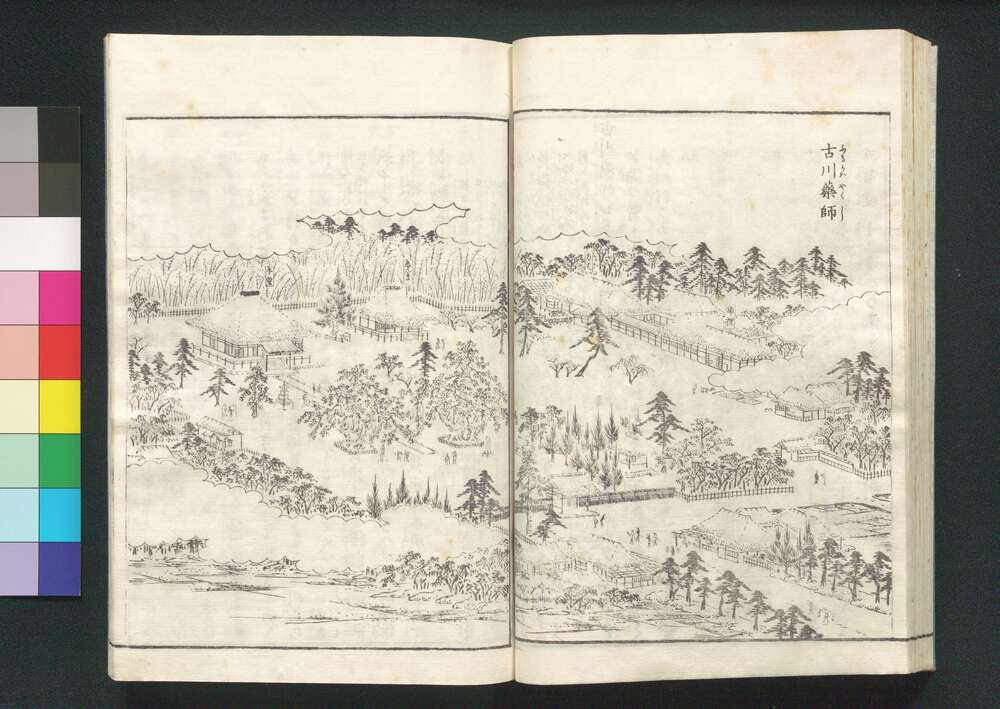 古川藥師
ふるかハやくし